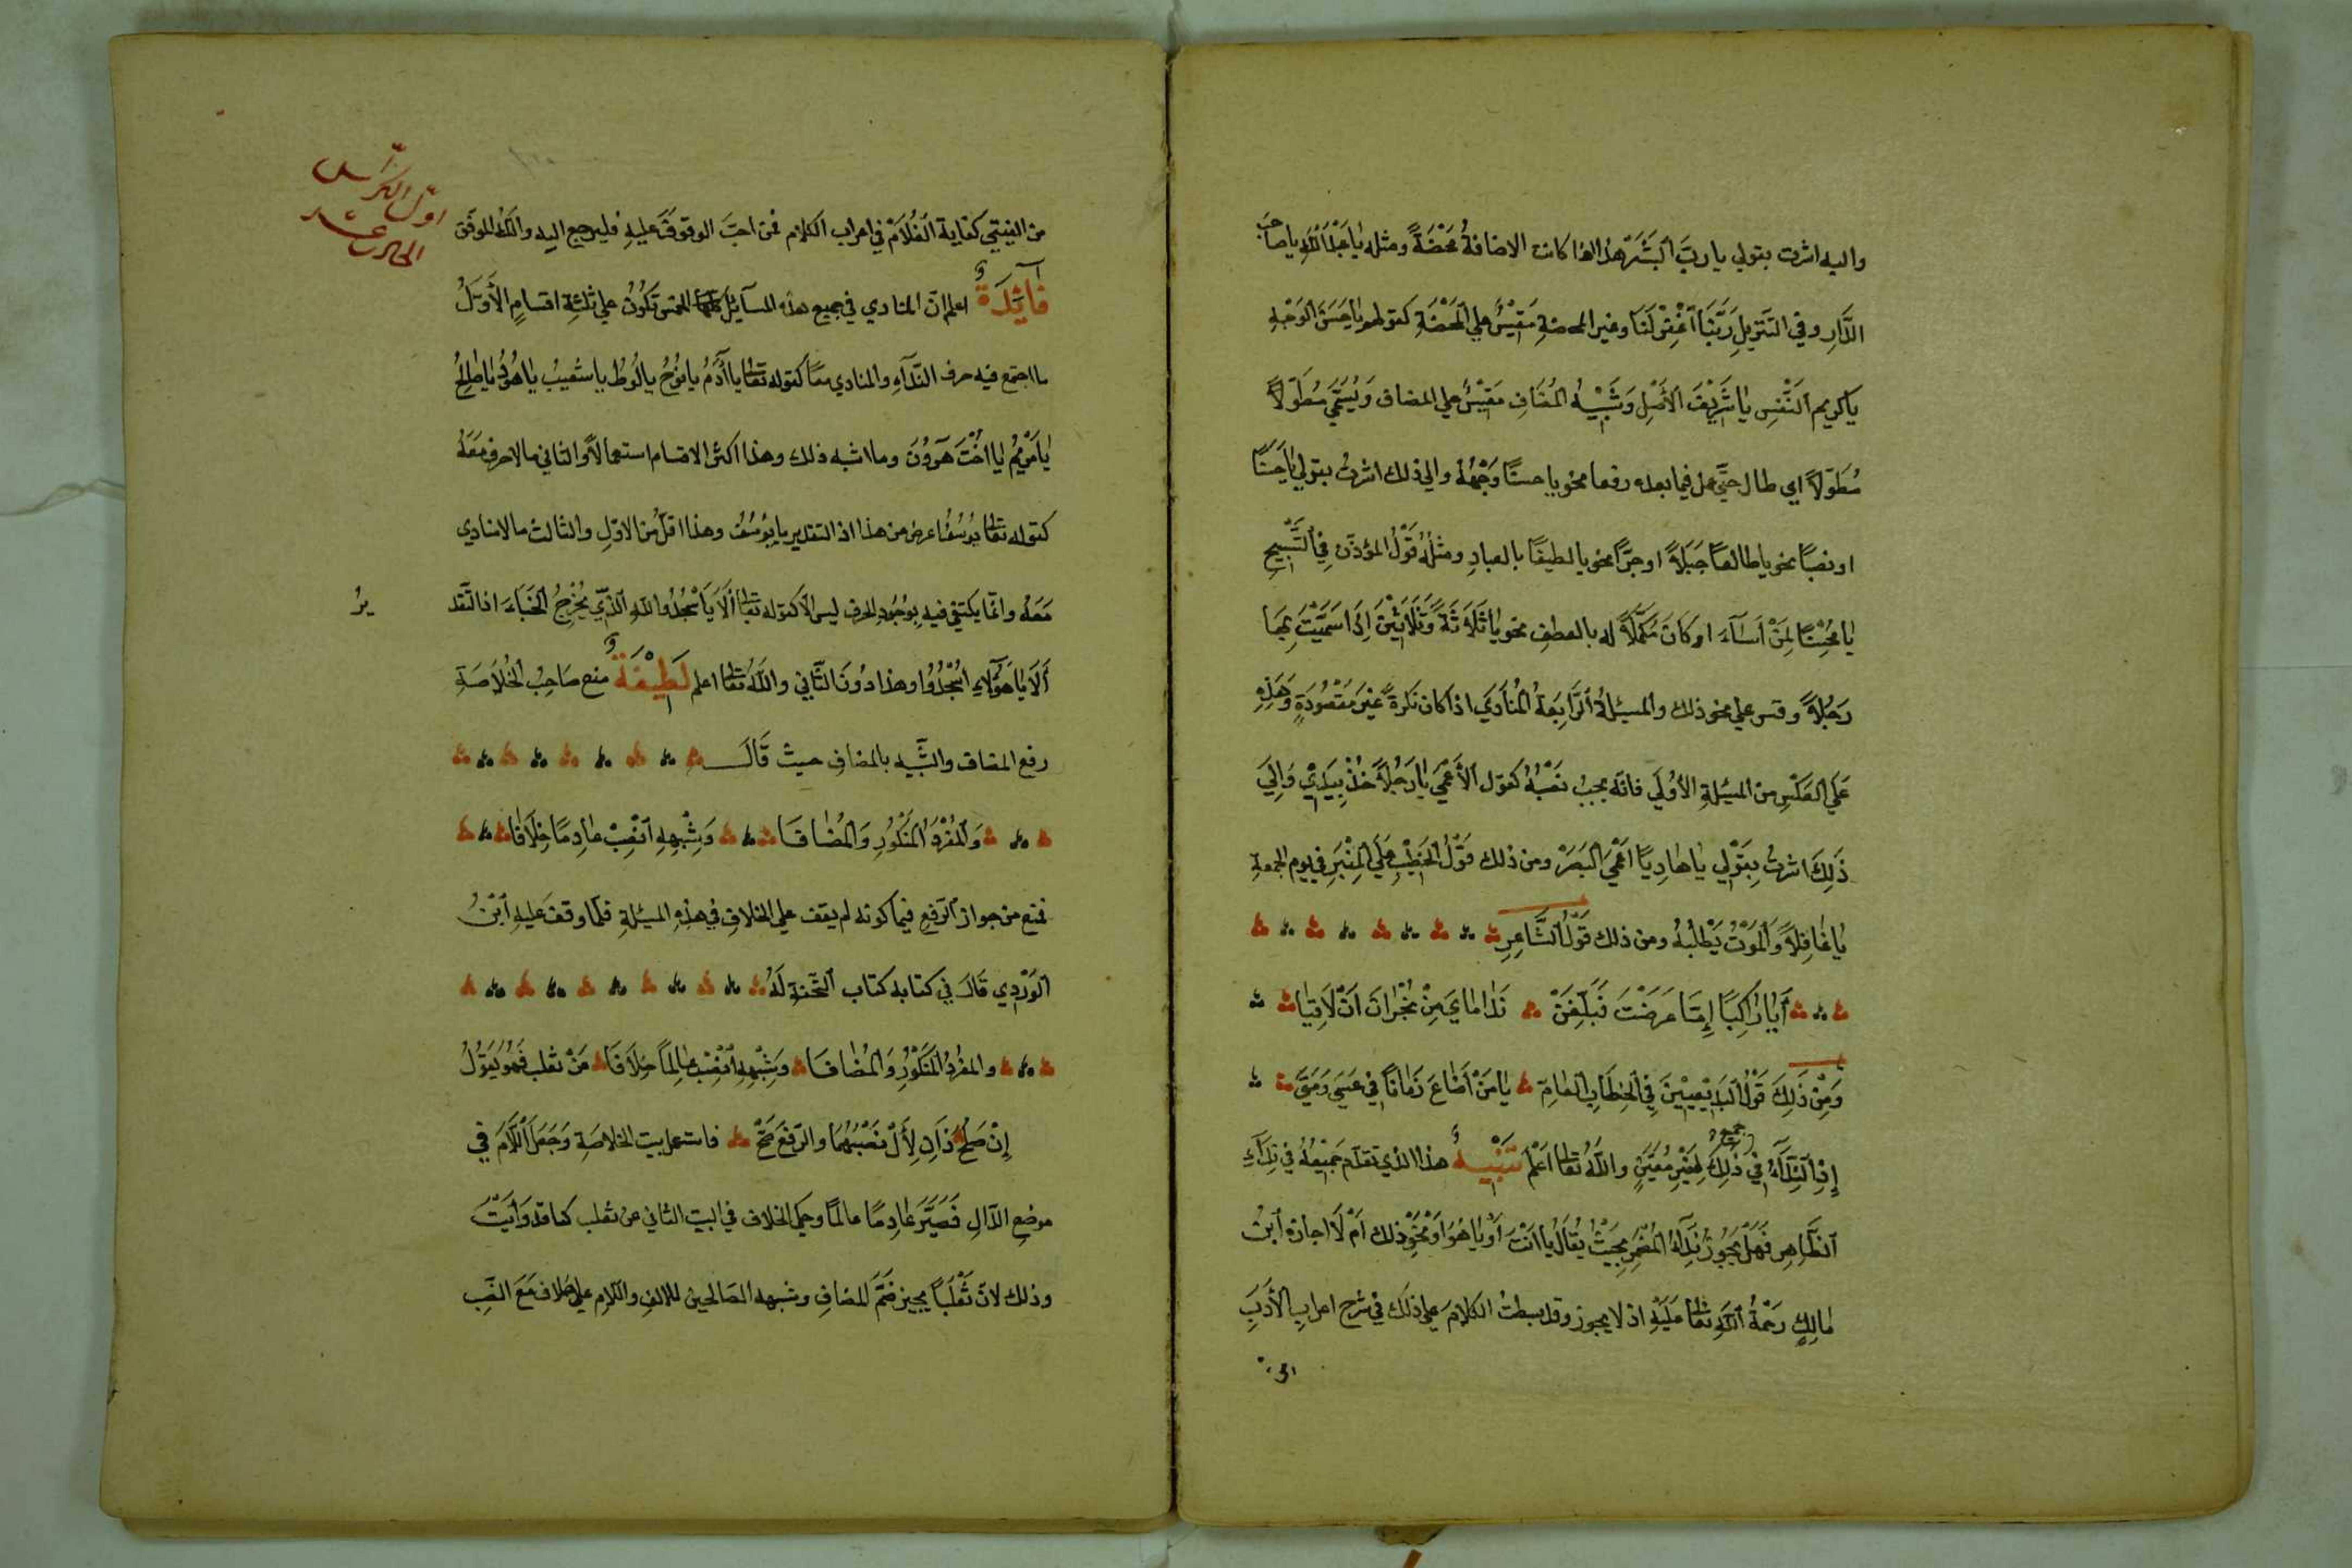 واليه اشرت بقولي يا ربّ البشر هذا اذا كانت الاضافةُ مَحْضَةً ومثله يا عَبْدَ اللّٰهِ يا صاحبَ
الدّارِ وفي التنزيلِ رَبَّنَا اغْفِرْ لَنَا وغير المحضةِ مَقِيْسٌ علي المَحْضَةِ كقولهم يا حَسَنَ الوَجْهِ
يا كريم النَّفْسِ يا شَرِيْفَ الأَصْلِ وَشَبِيْهُ المُضَافِ مَقِيْسٌ علي المضاف وَيُسَمَّي مُطَوَّلاً
مُطَوَّلاً اي طال حتّي عمل فيما بعده رفعا نحو يا حسنًا وَجْهُهُ والي ذلك اشرتُ بقولي يا حَسَنًا
او نصبًا نحو يا طالعًا جَبَلاً او جرًّا نحو يا لطيفًا بالعبادِ ومثلُهُ قَوْلُ المؤذّن فِي التَّسْبِيْحِ
يا مُحْسِنًا لِمَنْ اَسَآءَ او كَانَ مُكَمِّلاً له بالعطفِ نحو يا ثَلَاثَةً وَثَلَاثِيْنَ اِذَا سَمَّيْتَ بِهَا
رَجُلاً وقس علي نحو ذلك والمسئلةُ الرَّابِعَةُ المُنَادَي اذا كان نَكِرَةً غَيْرَ مَقْصُوْدَةٍ وَهَذِهِ
عَلَي العَكْسِ من المسئلةِ الأُوْلَي فانّه يجبُ نَصْبُهُ كقول الأَعْمَي يا رَجُلاً خُذْ بِيَدِيْ وَاِلَيَ
ذَلِكَ اشرتُ بِقَوْلِي يا هَادِيًا اَعْمَي البَصَرْ ومن ذلك قَوْلُ الخَطِيْبِ عَلَي المِنْبَرِ في يوم الجمعةِ
يا غَافِلاً وَالمَوْتُ يَطْلُبُهُ ومن ذلك قَوْلُ الشَّاعِرِ
أَيَا رَاكِبًا اِمَّا عَرَضْتَ فَبَلِّغَنْ نَدَامَايَ مِنْ نَجْرَانَ اَنْ لَا تَلَاقِيَا
وَمِنْ ذَلِكَ قَوْلُ البَدِيْعِيِّيْنَ فِي الخِطَابِ العَامِّ يا مَنْ اَضَاعَ زَمَانًا فِي عَسَي وَمَتَي
اِذِ النِّدَآءُ فِي جميع ذَلِكَ لِغَيْرِ مُعَيَّنٍ واللّٰهُ تعالي اَعْلَمُ تَنْبِيْهٌ هذا الذي تقدّم جَمِيْعُهُ فِي نِدَآءِ
الظَّاهِرِ فَهَلْ يَجُوْزُ نِدَآءُ المُضْمَرِ بِحَيْثُ يُقَالُ يا اَنْتَ اَوْ يا هُوَ اَوْ نَحْوُ ذلك اَمْ لَا اجازه ابنُ
مَالِكٍ رَحْمَةُ اللّٰهِ تعالي عَلَيْهِ اذ لا يجوز وقد بسطتُ الكَلَامَ علي ذلك فِي شرح اعرابِ الأَدَبِ
من الغيبتي كفاية الغُلَامْ في اعراب الكلام فمن احبّ الوقوفَ عليهِ فليرجع اليه واللّٰهُ الموفّق
اوّل الكرّاس
الحادي عشر
فَآئِدَةٌ اعلم انّ المنادي في جميع هذه المسآئل الخمس تَكُوْنُ علي ثلثةِ اقسامٍ الأَوَّلُ
ما اجتمع فيه حرف النّدآءِ والمنادي معًا كقوله تعالي يا آدَمُ يا نُوْحُ يا لُوْطُ يا شُعَيْبُ يا هُوْدُ يا صَالِحُ
يا مَرْيَمُ يا اُخْتَ هَرُوْنَ وما اشبه ذلك وهذا اكثر الاقسام استعمالاً والثاني ما لا حرف مَعَهُ
كقوله تعالي يُوْسُفُ اَعرض عن هذا اذ التقدير يا يُوْسُفُ وهذا اقلّ من الاوّلِ والثالث ما لا منادي
مَعَهُ وانّما يكتفي فيهِ بِوُجُوْدِ الحرف ليس الّا كقوله تعالي أَلَا يَا اسْجُدُوا للّٰهِ الَّذِيْ يُخْرِجُ الخَبْأَ اذ التّقد
يرُ
أَلَا يا هَؤُلَآءِ اسْجُدُوا وهذا دُوْنَ الثَّانِي واللّٰهُ تعالي اعلم لَطِيْفَةٌ منع صَاحِبُ الخُلَاصَةِ
رفع المضاف والشّبيه بالمضافِ حيثُ قَالَ
وَالمُفْرَدَ المَنْكُوْرَ وَالمُضَافَا وَشِبْهَهُ انْصِبْ عَادِمًا خِلَافَا
فمنع من جواز الرّفعِ فيهما كونه لم يقف علي الخلافِ فِي هذِهِ المسئلةِ فلمّا وقف عليهِ ابْنُ
الوَرْدِي قَالَ فِي كتابه كتاب التّحفة لَهُ
والمُفْرَدَ المَنْكُوْرَ وَالمُضَافَا وَشِبْهَهُ انْصِبْ عَالِمًا خِلَافَا عَنْ ثعلب فَهُوَ يَقُوْلُ
إِنْ صَلُحْ ذَانِ لِأَلْ نَصْبُهُمَا والرّفعُ صَحّْ فاستعمل بيت الخلاصَةِ وَجَعَلَ اللَّامَ في
موضعِ الدّالِ فَصَيَّرَ عَادِمًا عالمًا وحكي الخلاف في البيت الثاني عن ثعلب كما قد رَاَيْتَ
وذلك لانّ ثَعْلَبًا يجيز ضَمَّ المضافِ وشبهه الصّالحين للالفِ واللّامِ علي خلاف مَعَ النّصبِ